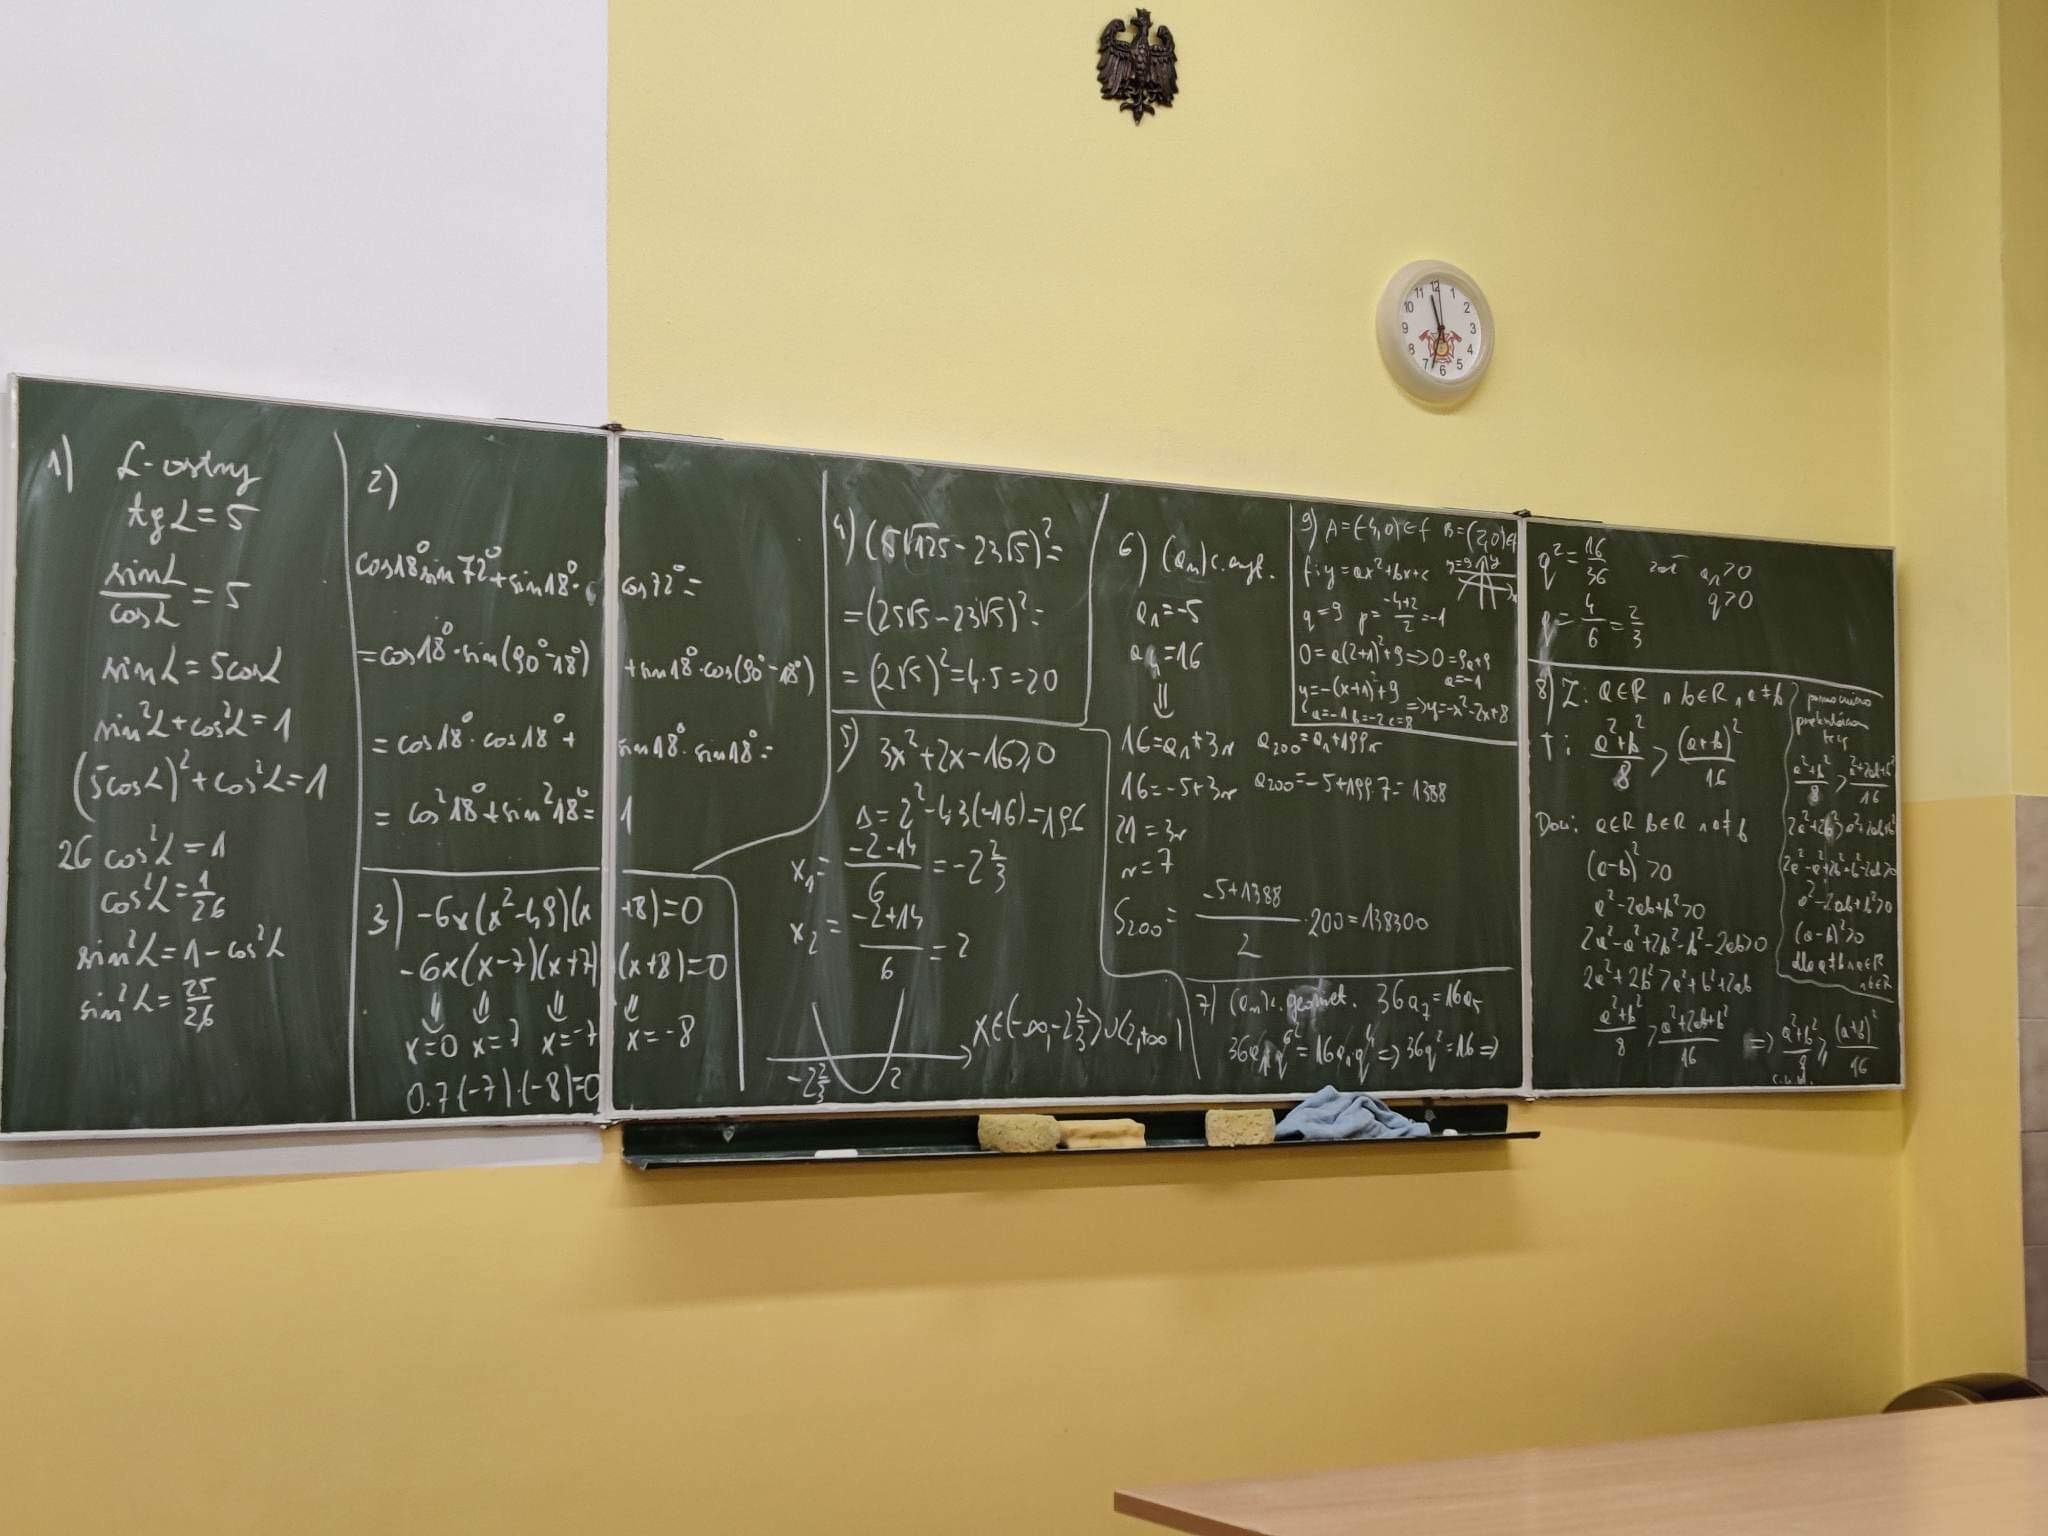 1) α-ostry
tg α = 5
sin α / cos α = 5
sin α = 5 cos α
sin²α + cos²α = 1
(5cos α)² + cos²α = 1
26 cos²α = 1
cos²α = 1/26
sin²α = 1 - cos²α
sin²α = 25/26
2)
cos18° sin72° + sin18° · cos72° =
= cos18° · sin(90°-18°) + sin18° · cos(90°-18°)
= cos18° · cos18° + sin18° · sin18° =
= cos²18° + sin²18° = 1
3) -6x(x²-49)(x+8)=0
-6x(x-7)(x+7)(x+8)=0
⇓ ⇓ ⇓ ⇓
x=0 x=7 x=-7 x=-8
0·7·(-7)·(-8)=0
4) (5√125 - 23√5)² =
= (25√5 - 23√5)² =
= (2√5)² = 4·5 = 20
5) 3x²+2x-16≥0
Δ=2²-4·3(-16)=196
x₁= (-2-14)/6 = -2 2/3
x₂= (-2+14)/6 = 2
x∈(-∞,-2 2/3>∪<2,+∞)
-2 2/3 2
6) (aₙ) c. aryt.
a₁=-5
a₄=16
⇓
16=a₁+3r a₂₀₀=a₁+199r
16=-5+3r a₂₀₀=-5+199·7=1388
21=3r
r=7
S₂₀₀= (-5+1388)/2 ·200=138300
7) (aₙ) c. geomet. 36a₇=16a₅
36a₁q⁶=16a₁·q⁴ ⇒ 36q²=16 ⇒
9) A=(-4,0)∈f B=(2,0)∈f
f: y=ax²+bx+c y=9 y
x
q=9 p= (-4+2)/2 =-1
0=a(2+1)²+9 ⇒ 0=9a+9
a=-1
y=-(x+1)²+9 ⇒ y=-x²-2x+8
a=-1 b=-2 c=8
q²= 16/36 zał aₙ>0
q>0
q= 4/6 = 2/3
8) Z: a∈R ∧ b∈R ∧ a≠b
T: (a²+b²)/8 > (a+b)²/16
Dow: a∈R b∈R ∧ a≠b
(a-b)²>0
a²-2ab+b²>0
2a²-a²+2b²-b²-2ab>0
2a²+2b²>a²+b²+2ab
(a²+b²)/8 > (a²+2ab+b²)/16 ⇒ (a²+b²)/8 > (a+b)²/16
c.n.d.
tezy
(a²+b²)/8 > (a²+2ab+b²)/16
2a²+2b²>a²+2ab+b²
2a²-a²+2b²-b²-2ab>0
a²-2ab+b²>0
(a-b)²>0
dla a≠b ∧ a∈R
∧ b∈R
11 12 1
10 2
9 3
8 4
7 6 5